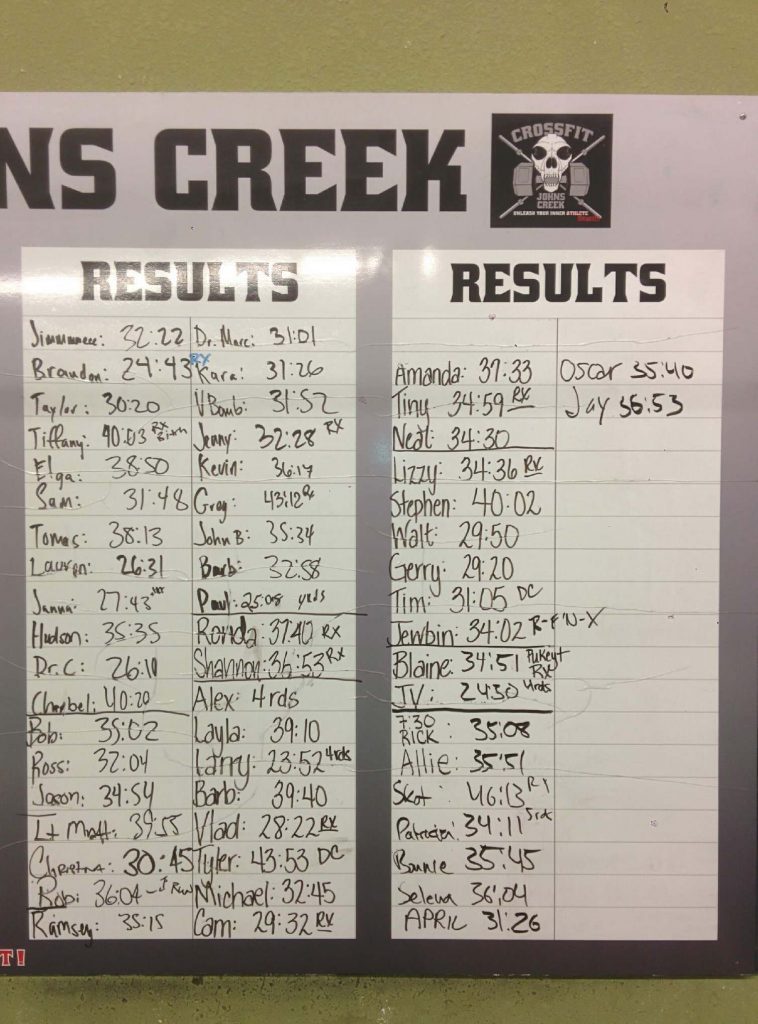 NS CREEK
CROSSFIT
JOHNS
CREEK
UNLEASH YOUR INNER ATHLETE
RESULTS
Brandon: 24:43 RX
Taylor: 30:20
Tiffany: 40:03 RX
Elga: 38:50
Sam: 31:48
Tomas: 38:13
Lauren: 26:31
Janna: 27:43
Hudson: 35:35
Dr. C: 26:11
Charbel: 40:20
Bob: 35:02
Ross: 32:04
Jason: 34:54
Lt Matt: 39:55
Christina: 30:45
Rob: 36:04 - I Run
Ramsey: 35:15
Dr. Marc: 31:01
Kara: 31:26
VBomb: 31:52
Jenny: 32:28 RX
Kevin: 36:17
Greg: 43:12 Rx
John B: 35:34
Barb: 32:58
Paul: 25:08 4rds
Ronda: 37:40 RX
Shannon: 36:53 RX
Alex: 4rds
Layla: 39:10
Larry: 23:52 4rds
Barb: 39:40
Vlad: 28:22 RX
Tyler: 43:53 DC
Michael: 32:45
Cam: 29:32 RX
RESULTS
Amanda: 37:33
Tiny: 34:59 RX
Neal: 34:30
Lizzy: 34:36 RX
Stephen: 40:02
Walt: 29:50
Gerry: 29:20
Tim: 31:05 DC
Jewbin: 34:02 R-E-'N-X
Blaine: 34:51 Pukey+ RX
JV: 24:30 4rds
7:30
RICK: 35:08
Allie: 35:51
Skot: 46:13 RX
34:11
Bonnie 35:45
Selena 36:04
APRIL 31:26
Oscar 35:40
Jay 36:53
T!